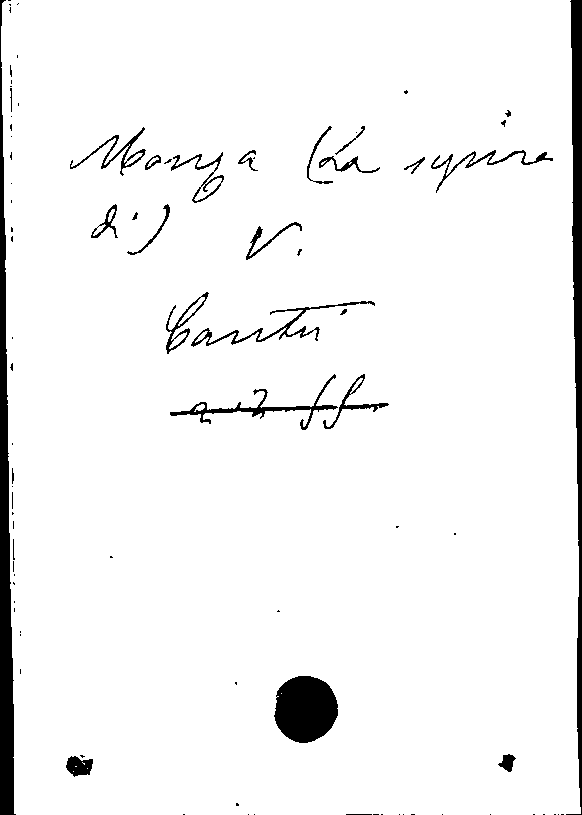 Monza (La signora
di) V.
Cantù